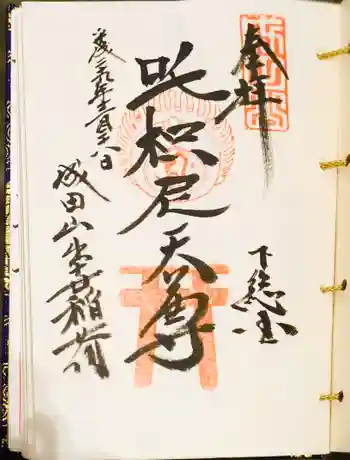 奉拝
下総国
吒枳尼天尊
成田山出世稲荷
平成二十九年十一月十八日